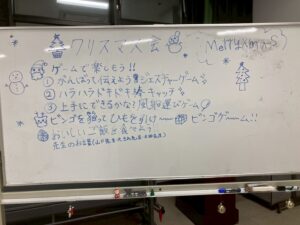 クリスマス会
Merry Xmas
ゲームで楽しもう!!
① がんばって伝えよう!! ジェスチャーゲーム
② ハラハラドキドキ棒キャッチ
③ 上手にできるかな?風船運びゲーム
ビンゴを狙って ひもを引け〜 ビンゴゲーム!!
おいしいご飯を食べよう
先生のお話